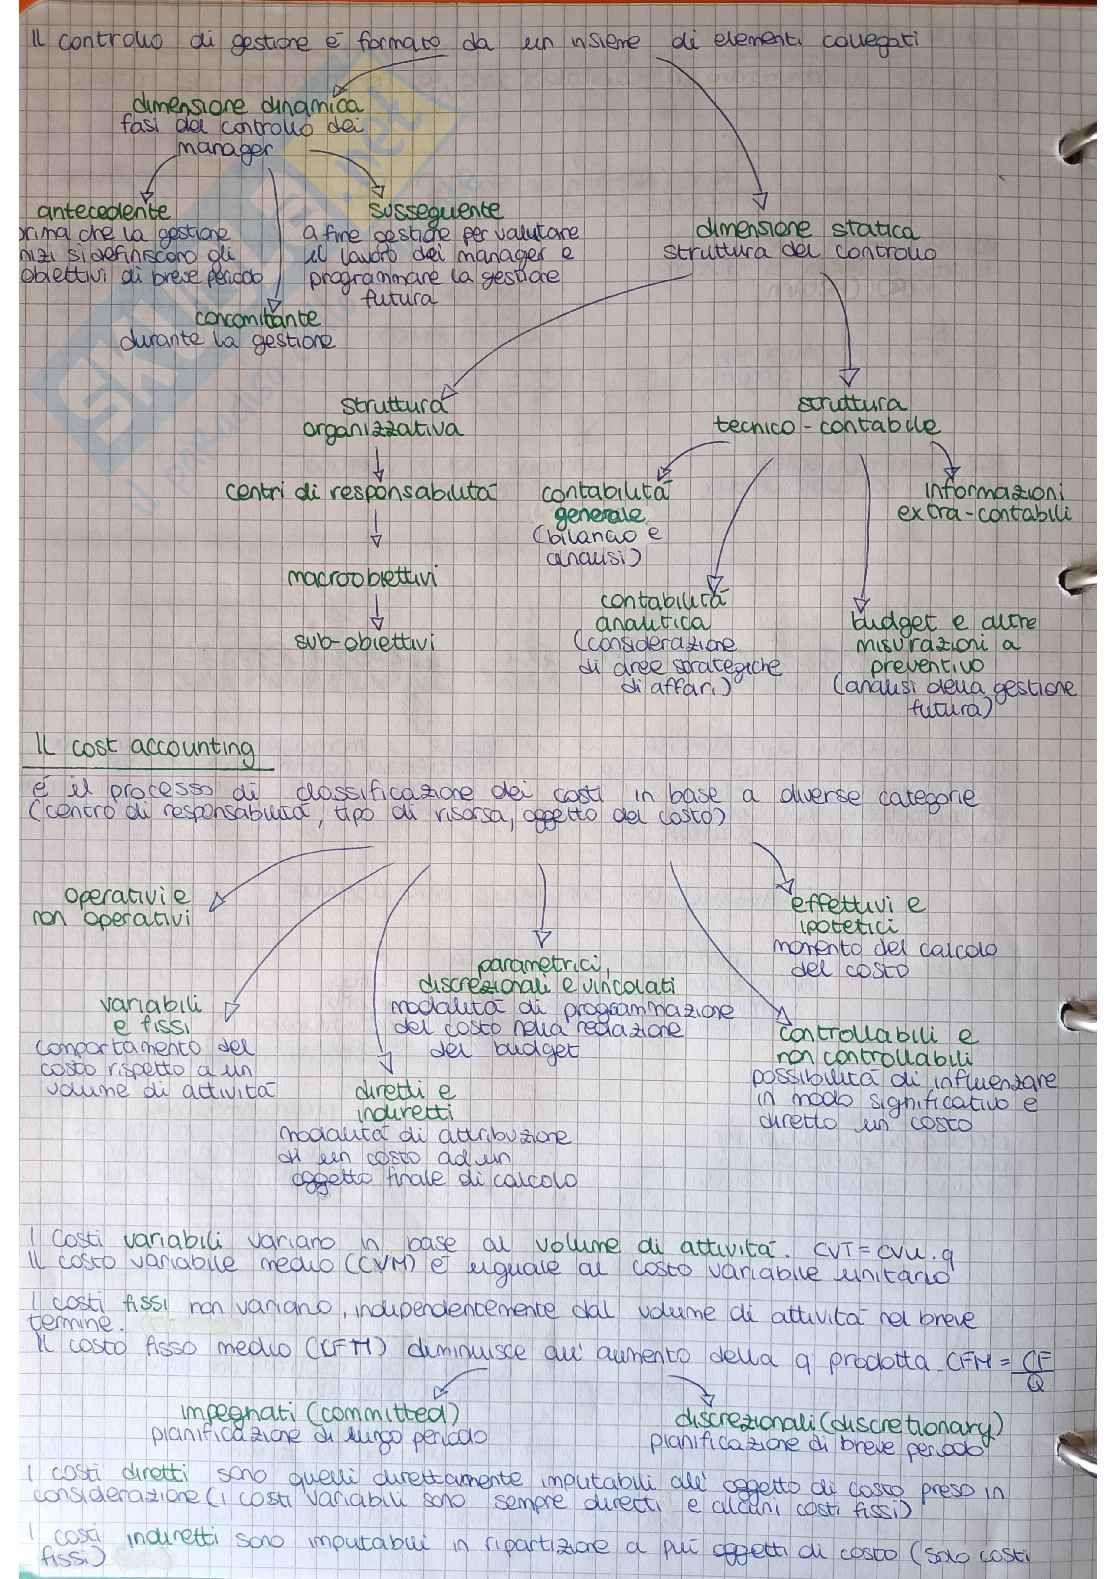 Il controllo di gestione è formato da un insieme di elementi collegati
dimensione dinamica
fasi del controllo dei
manager
antecedente
prima che la gestione
inizi si definiscono gli
obiettivi di breve periodo
susseguente
a fine gestione per valutare
il lavoro dei manager e
programmare la gestione
futura
concomitante
durante la gestione
dimensione statica
struttura del controllo
struttura
organizzativa
centri di responsabilità
macroobiettivi
sub-obiettivi
struttura
tecnico-contabile
contabilità
generale
(bilancio e
analisi)
contabilità
analitica
(considerazione
di aree strategiche
di affari)
budget e altre
misurazioni a
preventivo
(analisi della gestione
futura)
informazioni
extra-contabili
Il cost accounting
è il processo di classificazione dei costi in base a diverse categorie
(centro di responsabilità, tipo di risorsa, oggetto del costo)
operativi e
non operativi
variabili
e fissi
comportamento del
costo rispetto a un
volume di attività
diretti e
indiretti
modalità di attribuzione
di un costo ad un
oggetto finale di calcolo
parametrici,
discrezionali e vincolati
modalità di programmazione
del costo nella redazione
del budget
effettivi e
ipotetici
momento del calcolo
del costo
controllabili e
non controllabili
possibilità di influenzare
in modo significativo e
diretto un costo
I costi variabili variano in base al volume di attività. CVT=CVU.q
Il costo variabile medio (CVM) è uguale al costo variabile unitario
I costi fissi non variano, indipendentemente dal volume di attività nel breve
termine.
Il costo fisso medio (CFM) diminuisce all'aumento della q prodotta CFM = CF/Q
impegnati (committed)
pianificazione di lungo periodo
discrezionali (discretionary)
pianificazione di breve periodo
I costi diretti sono quelli direttamente imputabili all'oggetto di costo preso in
considerazione (i costi variabili sono sempre diretti e alcuni costi fissi)
I costi indiretti sono imputabili in ripartizione a più oggetti di costo (solo costi
fissi)
SKUOLA.net